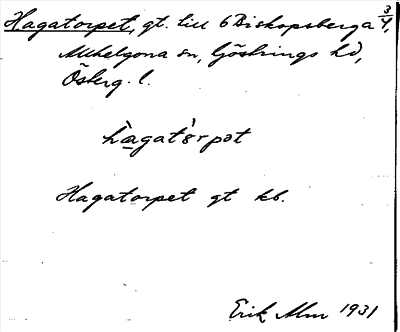 Hagatorpet, gt. till 6 Biskopsberga 3/4,
Allhelgona sn, Göstrings hd,
Österg. l.
hàgatòrpət
Hagatorpet gt kb.
Erik Alm 1931